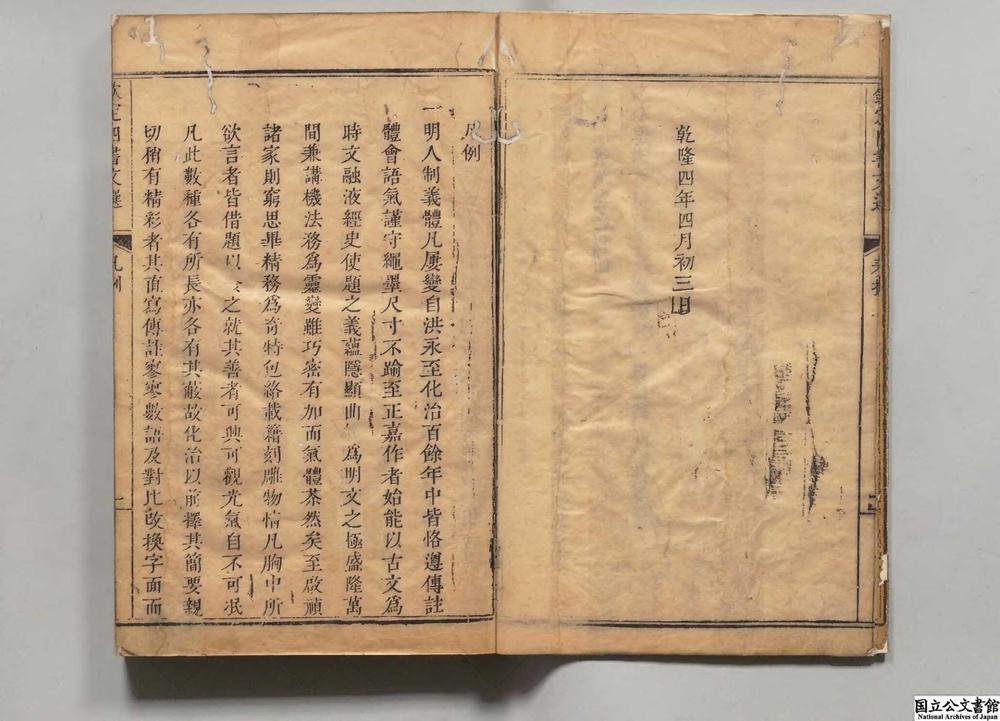 乾隆四年四月初三日
凡例
一明人制義體凡屢變自洪永至化治百餘年中皆恪遵傳註
體會語氣謹守繩墨尺寸不踰至正嘉作者始能以古文為
時文融液經史使題之義蘊隱顯曲 為明文之極盛隆萬
間兼講機法務為靈變雖巧密有加而氣體茶然矣至啟禎
諸家則窮思畢精務為奇特包絡載籍刻雕物情凡胸中所
欲言者皆借題以 之就其善者可興可觀光氣自不可泯
凡此數種各有所長亦各有其蔽故化治以前擇其簡要親
切稍有精彩者其直寫傳註寥寥數語及對比改換字面而
欽定四書文選
凡例
一
1
国立公文書館
National Archives of Japan